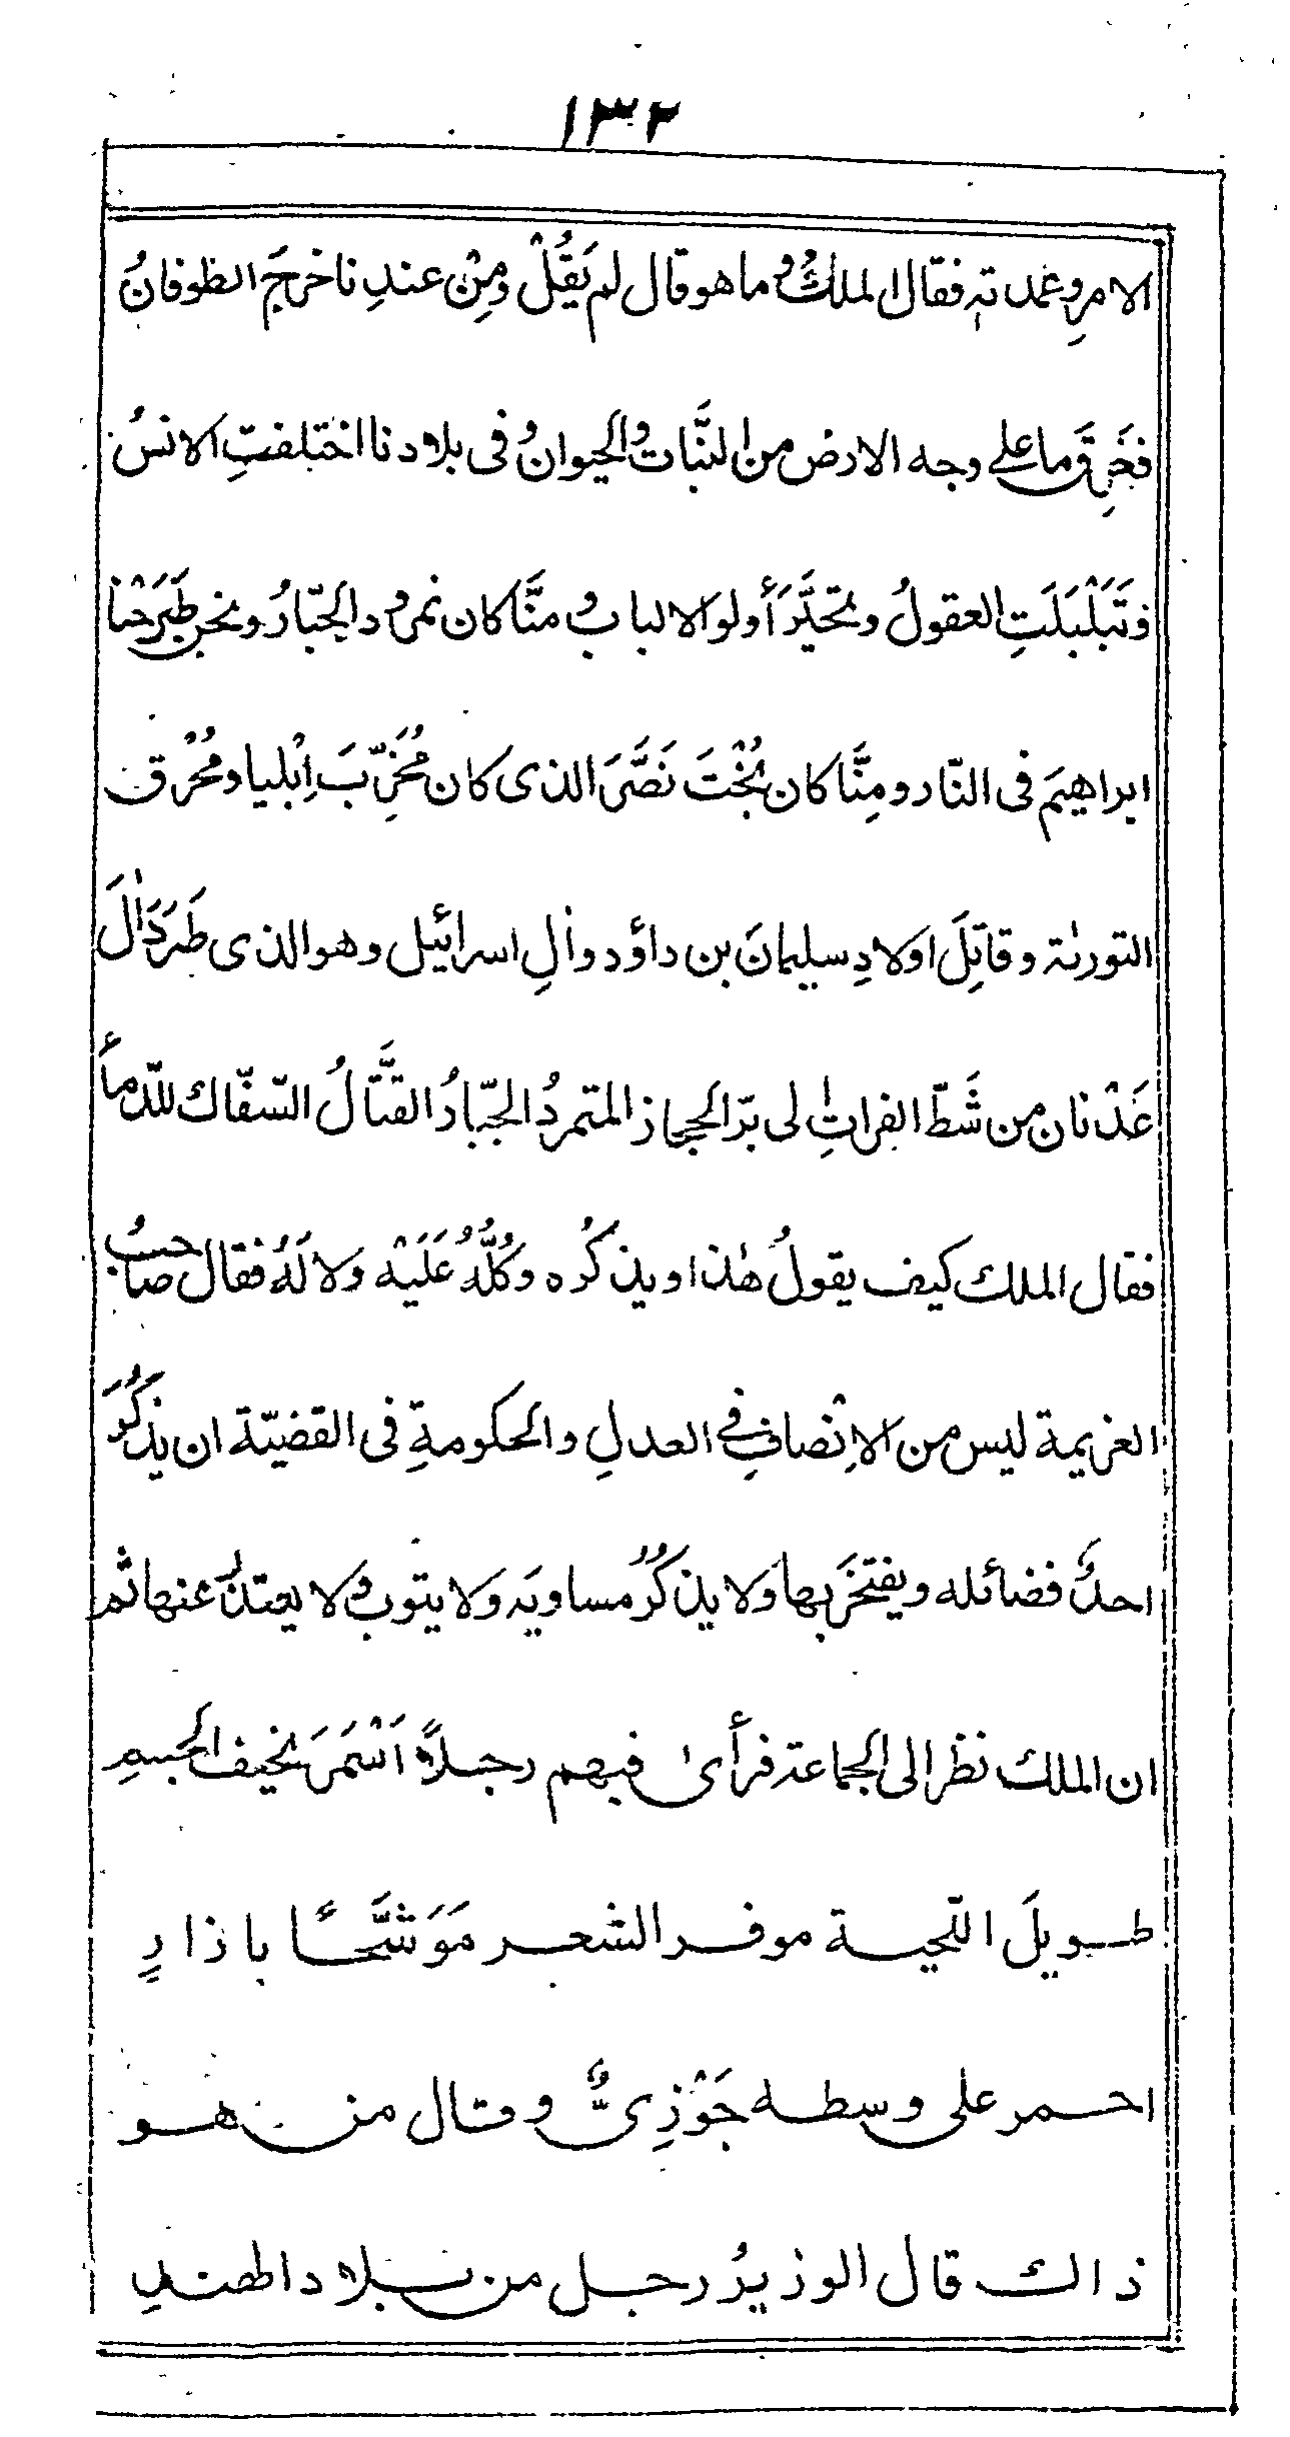 ١٣٢
الامرِ وعمدته فقال الملكُ وما هو قال لم يَقُلْ ومِنْ عندِنا خرجَ الطوفانُ
فخَرِقَ ما على وجه الارض من النَّباتُ والحيوانُ وفى بلادنا اختلفتِ الانسُ
فتَبَلْبَلَتِ العقولُ وتحَيَّرَ أولوا الالباب ومنَّا كان نمرود الجبّارُ ونحن طَرَحْنا
ابراهيمَ فى النّار ومِنَّا كان بُخْتَ نَصَّرَ الذى كان مُخَرِّبَ اِيْليا ومُحْرق
التورٰىة وقاتِلَ اولادِ سليمانَ بن داؤد واٰلِ اسرائيل وهو الذى طَرَدَ اٰلَ
عَدْنان من شَطّ الفراتِ الى برّ الحجاز المتمردُ الجبّارُ القتَّالُ السّفّاك للدّماء
فقال الملك كيف يقولُ هٰذا ويذكُره وكُلُّهُ عَلَيْه ولا لَهُ فقال صاحبُ
العزيمة ليس من الاِنْصافِ فى العدلِ والحكومةِ فى القضيّة ان يذكُرَ
احدٌ فضائله ويفتخَر بها ولا يذكُرُ مساويَه ولا يتوب ولا يعتذر عنها ثم
ان الملك نظر الى الجماعة فرأىٰ فيهم رجلاً اَسْمَرَ نحيف الجسمِ
طويلَ اللّحية موفر الشعر مَوَشَّحًا باذارٍ
احمر على وسطه جَوْزِىٌّ وقال من هو
ذالك قال الوزيرُ رجل من بلاد الهندِ